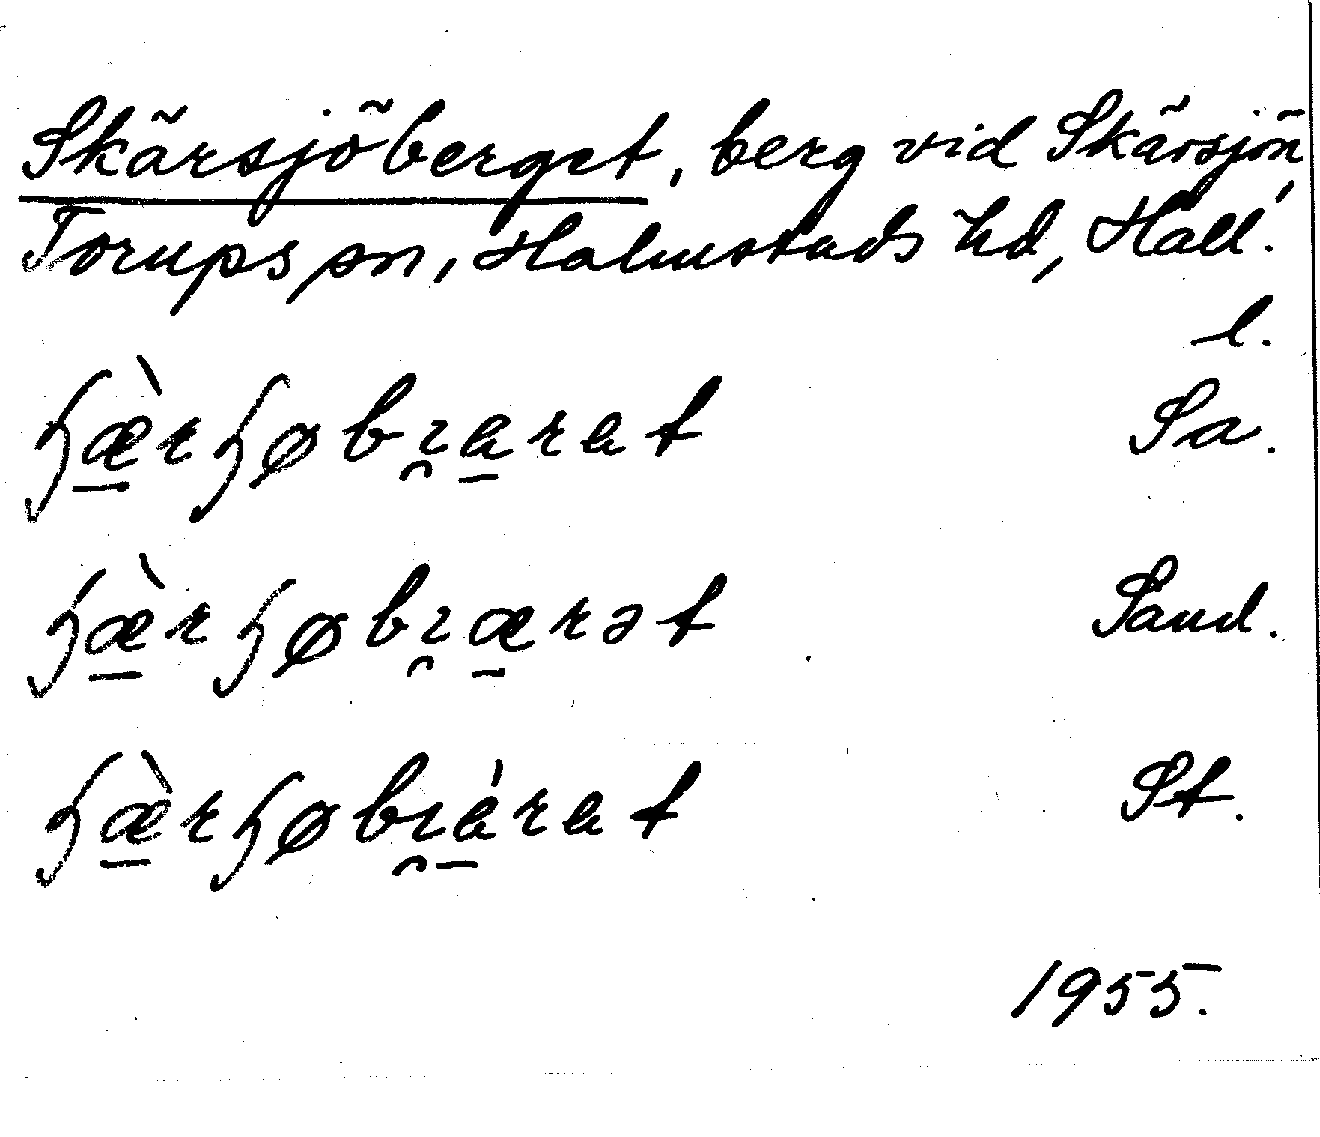 Skärsjöberget, berg vid Skärsjön,
Torups sn, Halmstads hd, Hall.
l.
ɧæ̠̀rɧøbı̯a̠rat Sa.
ɧæ̠̀rɧøbı̯æ̠rət Sand.
ɧæ̠̀rɧøbı̯á̠rat St.
1955.